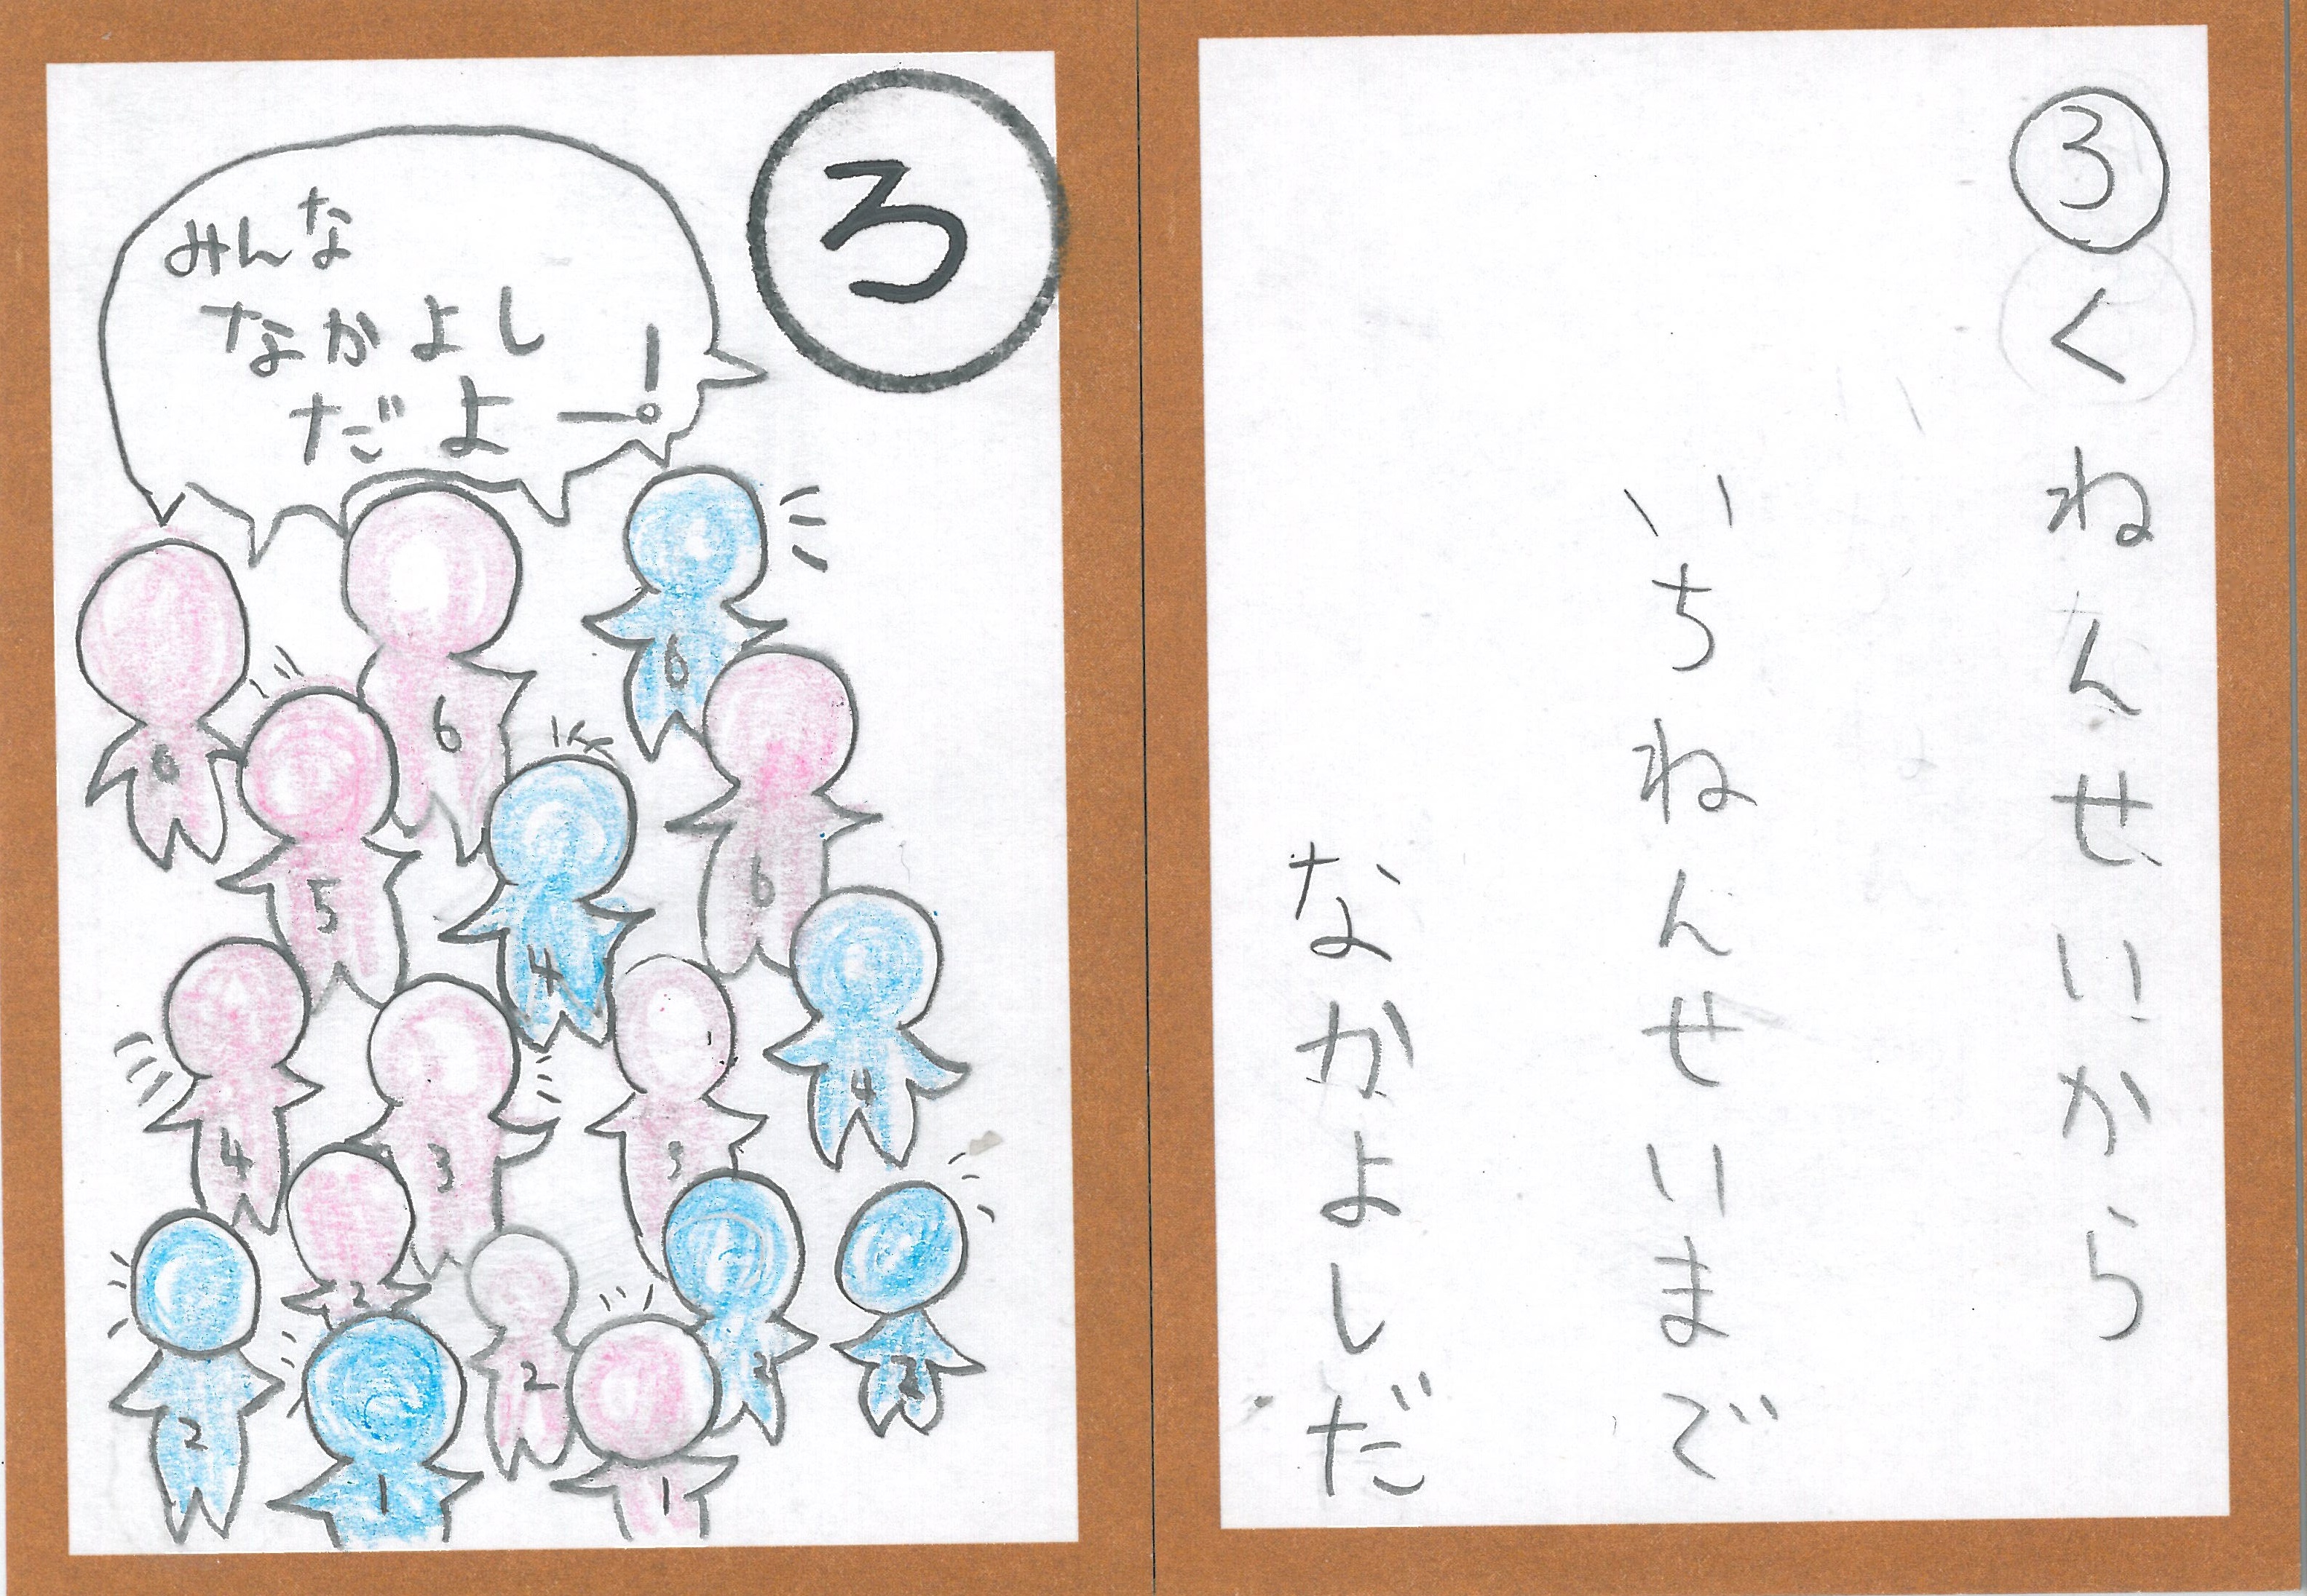 ろ
みんな
なかよし
だよー!
6
6
6
6
5
4
4
4
3
2
2
2
2
1
1
ろくねんせいから
いちねんせいまで
なかよしだ